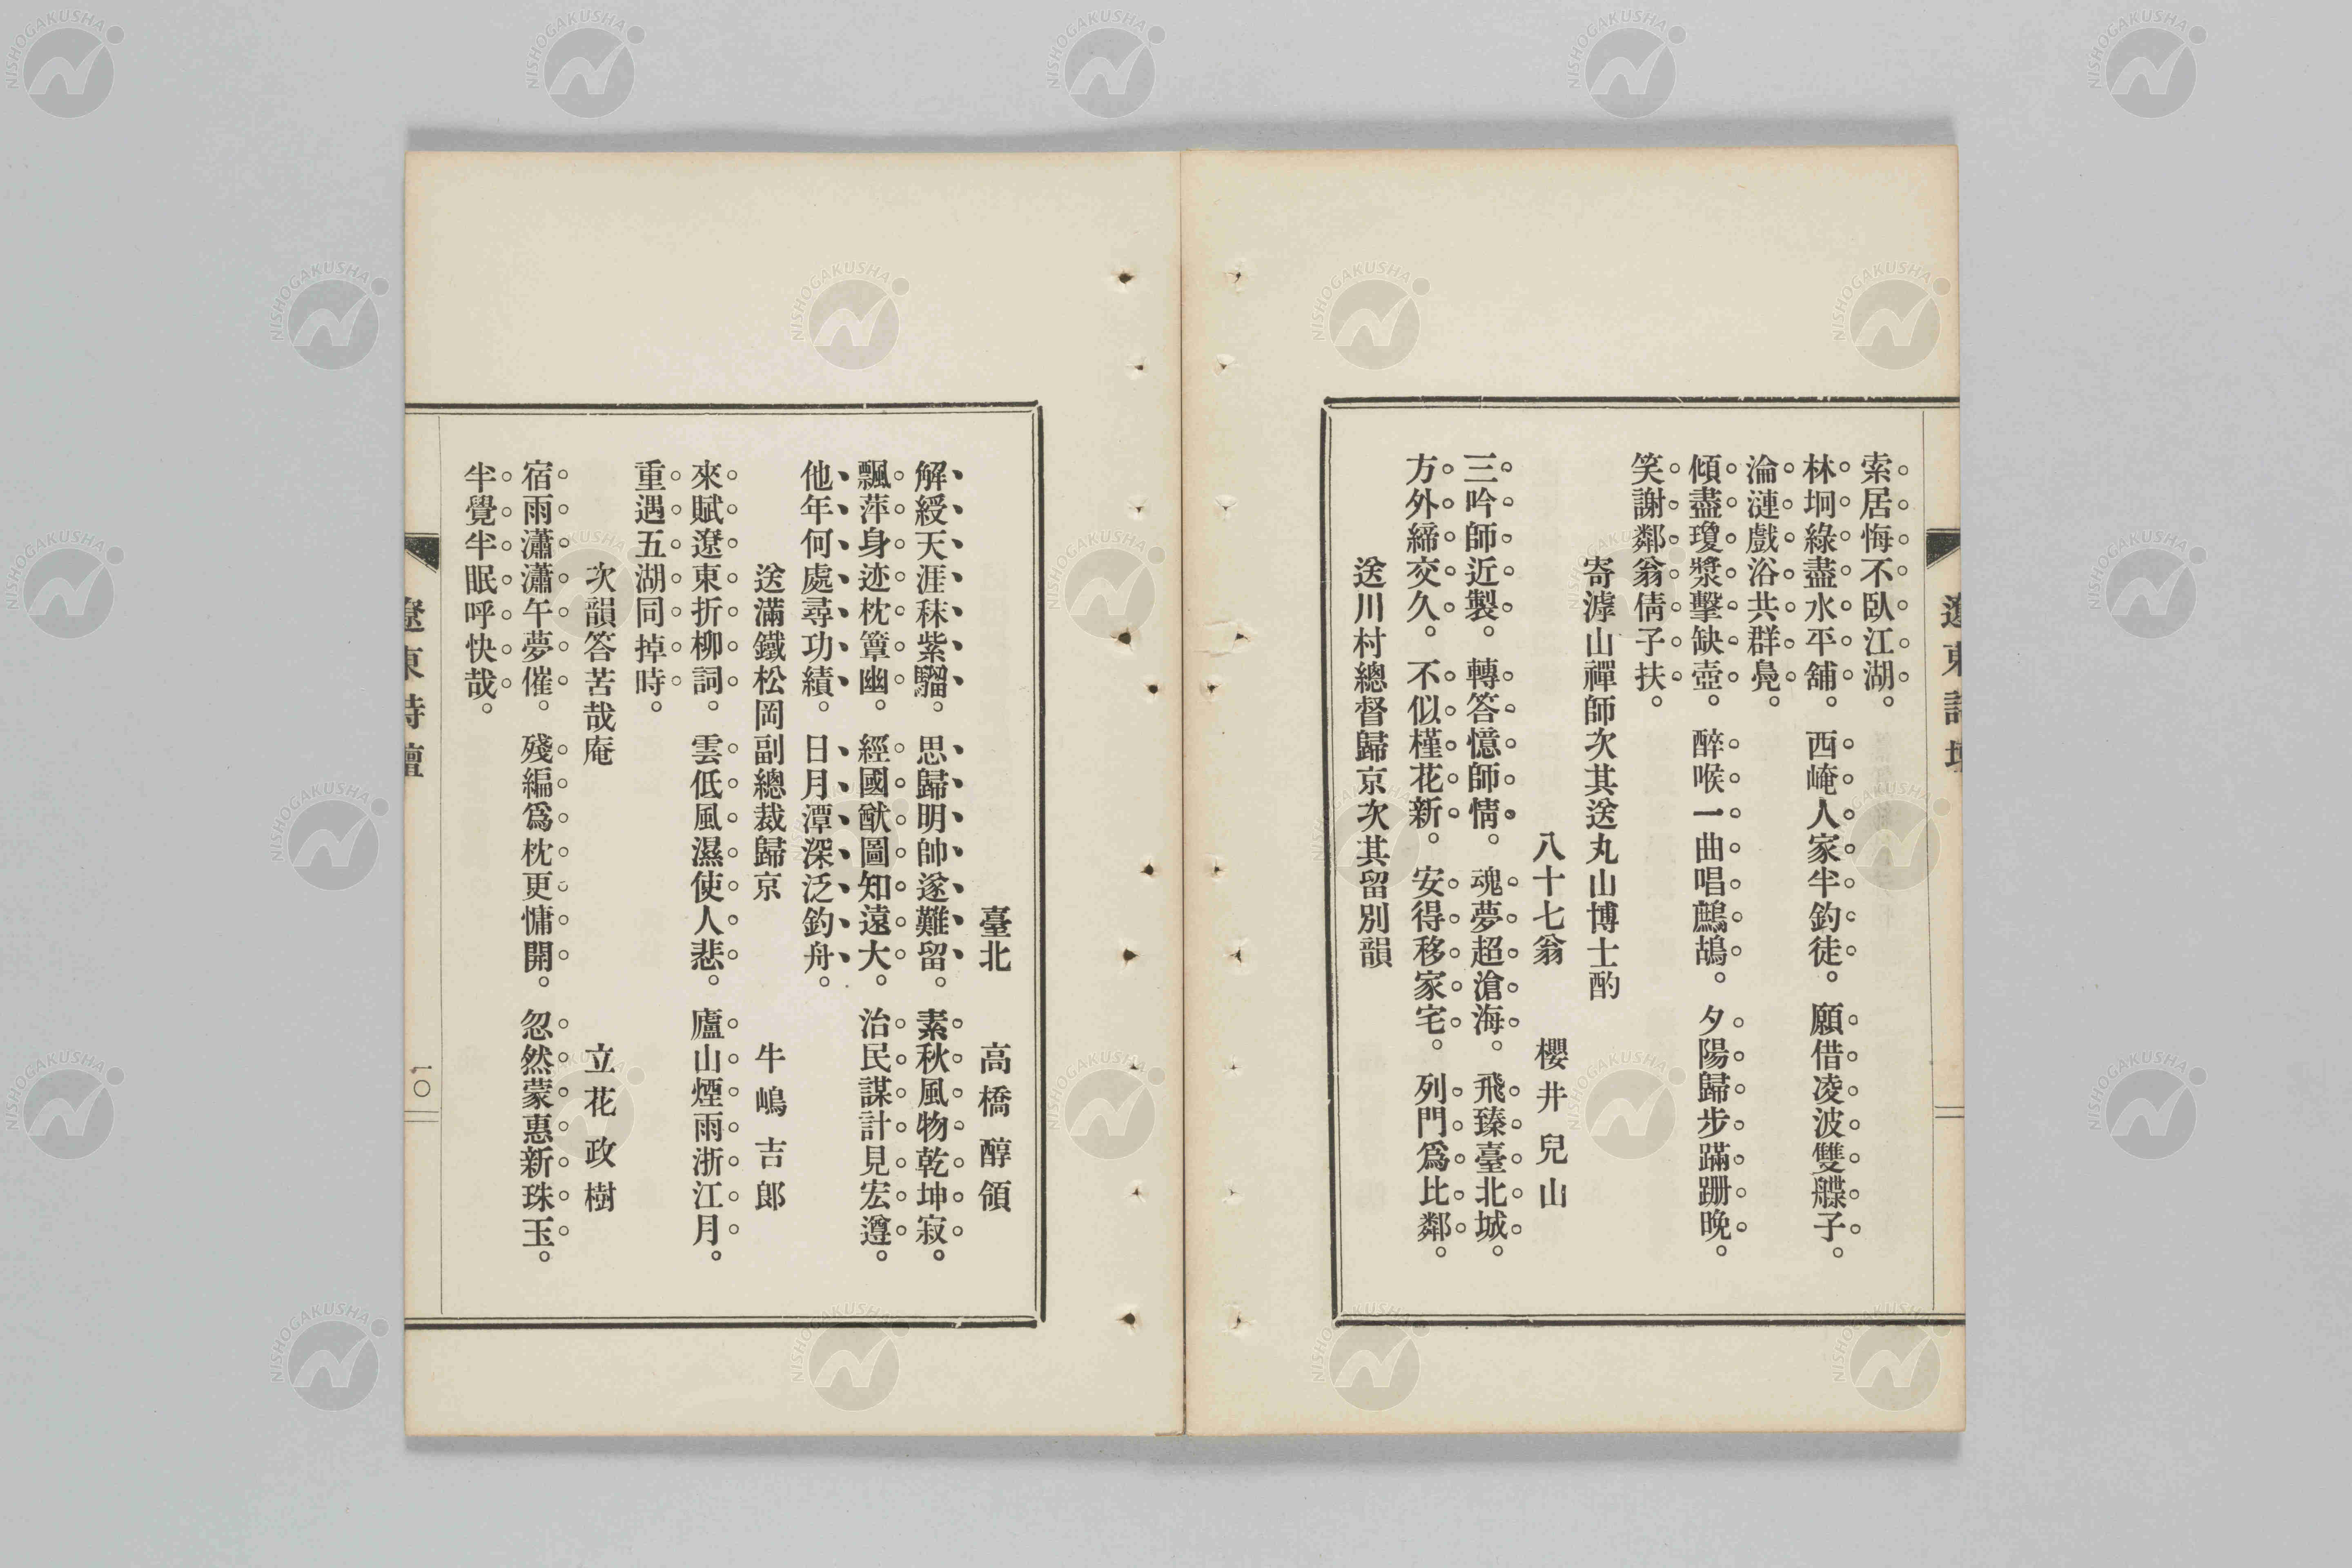 索居悔不臥江湖。
林坰綠盡水平舖。西崦人家半釣徒。願借凌波雙艓子。
淪漣戲浴共群鳧。
傾盡瓊漿擊缺壺。醉喉一曲唱鷓鴣。夕陽歸步蹣跚晚。
笑謝鄰翁倩子扶。
寄滹山禪師次其送丸山博士酌
八十七翁 櫻井兒山
三吟師近製。轉答憶師情。魂夢超滄海。飛臻臺北城。
方外締交久。不似槿花新。安得移家宅。列門爲比鄰。
送川村總督歸京次其留別韻
臺北 高橋醇領
解綬天涯秣紫騮。思歸明帥遂難留。素秋風物乾坤寂。
飄萍身迹枕簟幽。經國猷圖知遠大。治民謀計見宏遵。
他年何處尋功績。日月潭深泛釣舟。
送滿鐵松岡副總裁歸京 牛嶋吉郎
來賦遼東折柳詞。雲低風濕使人悲。廬山煙雨浙江月。
重遇五湖同掉時。
次韻答苦哉庵 立花政樹
宿雨瀟瀟午夢催。殘編爲枕更慵開。忽然蒙惠新珠玉。
半覺半眠呼快哉。
遼東詩壇
一〇
NISHOGAKUSHA